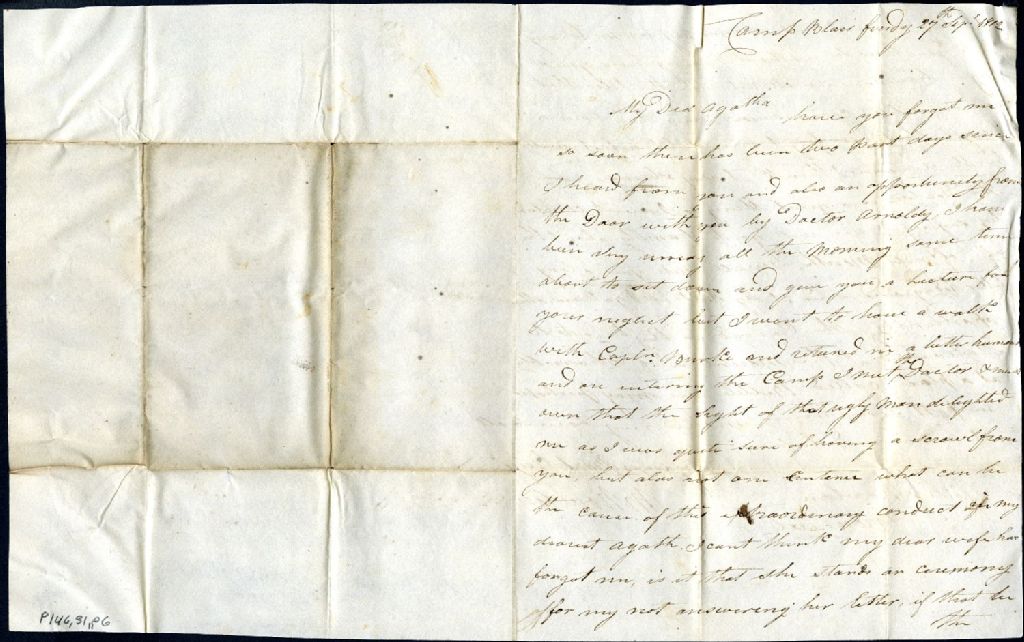 Camp Blair findy 27th Sept 1812
My Dear Agatha have you forgot me
so soon there has been two Post days since
I heard from you and also an opportunity from
the Door with you by Doctor Arnoldy, I have
been very uneasy all the Morning some time
about to sit down and give you a lecture for
your neglect but I went to have a walk
with Captn. Burke and returned in a better humour
and on entering the Camp I met the Doctor & must
own that the sight of that ugly Man delighted
me as I was quite sure of having a scrawl from
you, but alas not one Centence what can be
the cause of this extraordinary conduct of my
dearest Agath. I cant think my dear wife has
forgot me, is it that she stands on ceremony
for my not answering her letter, if that be
the
P146,S1,P6